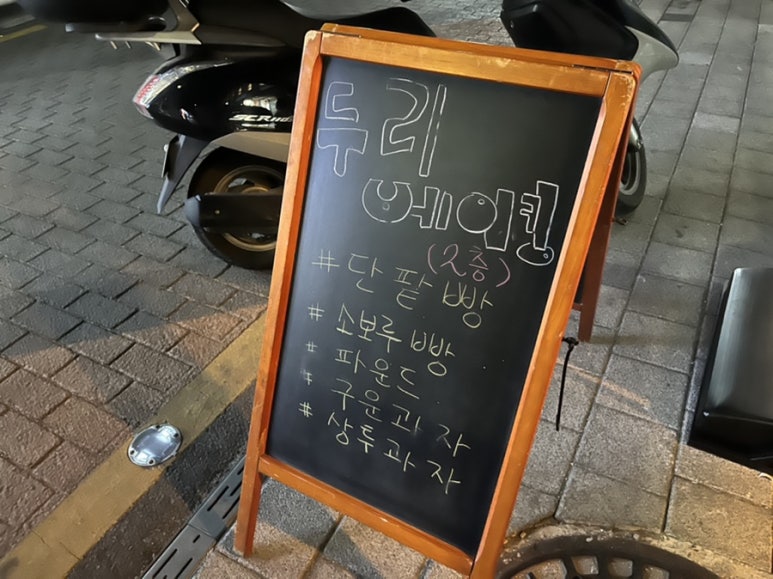 두리
베이킹
(2층)
# 단팥빵
# 소보루빵
# 파운드
# 구운과자
# 상투과자